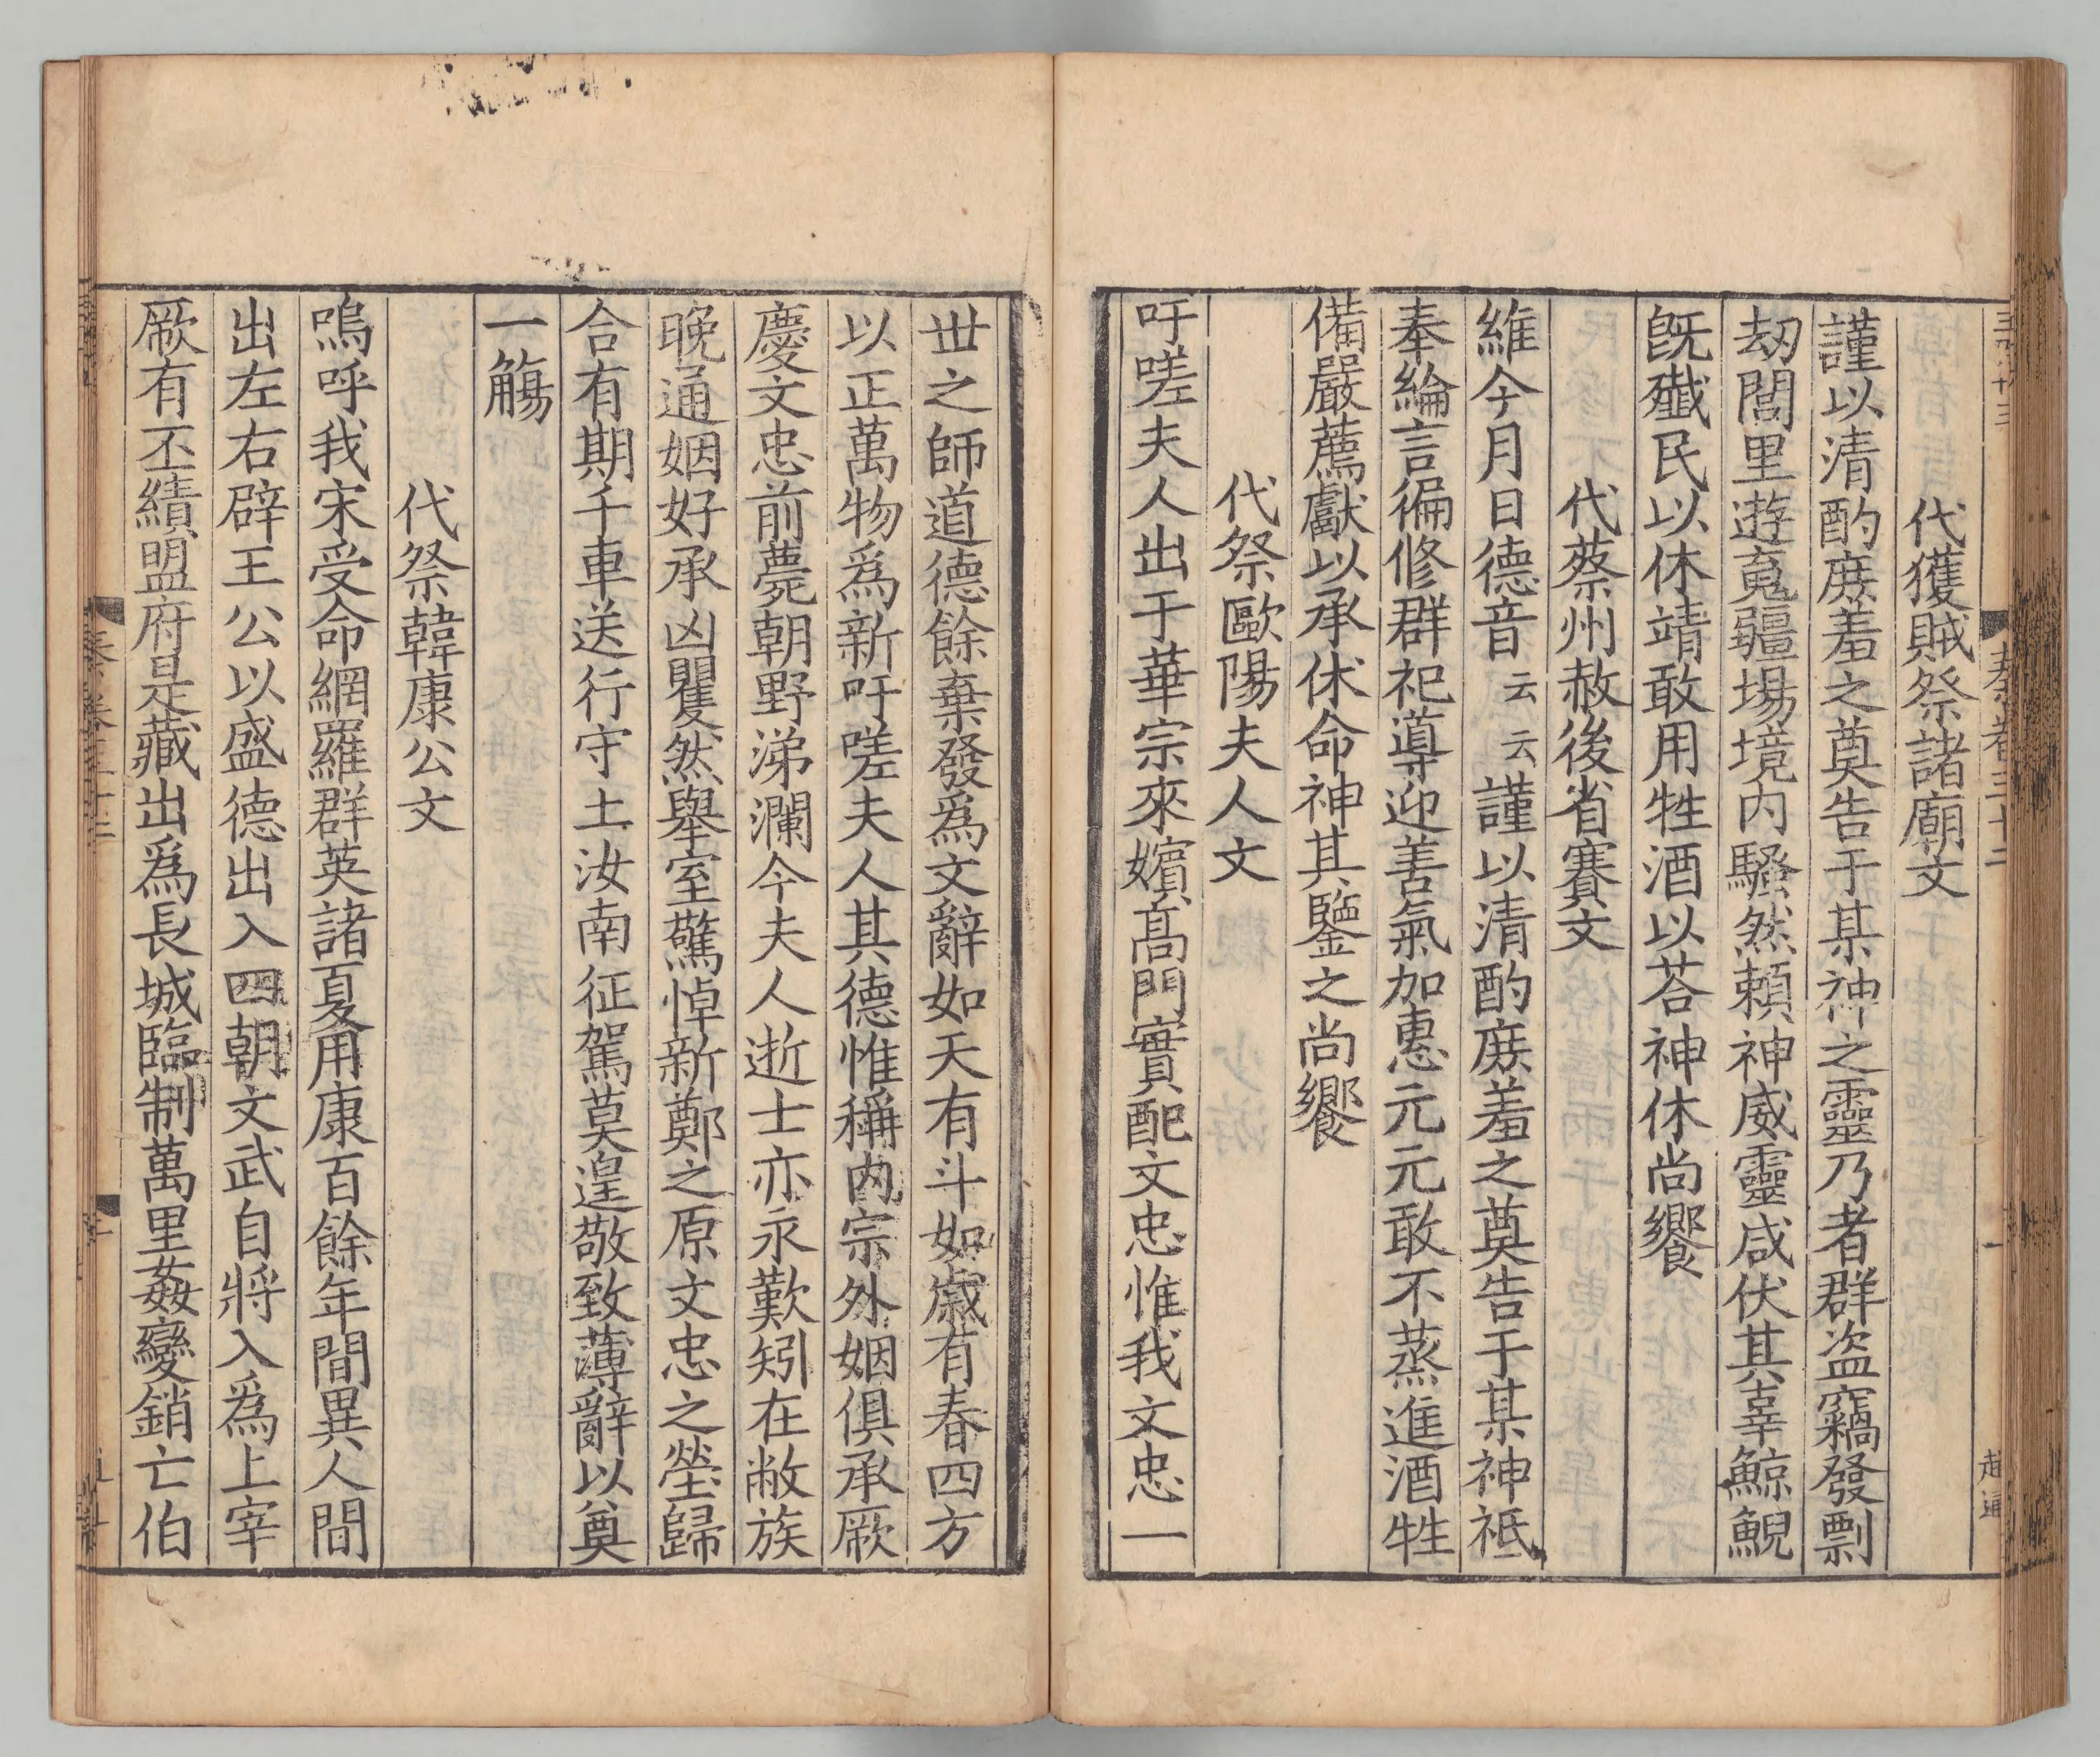 代獲賊祭諸廟文
謹以清酌庻羞之奠告于某神之靈乃者群盜竊發剽
刼閭里遊䰟疆場境内騷然頼神威靈咸伏其辜鯨鯢
旣殲民以休靖敢用牲酒以荅神休尚饗
代蔡州赦後省賽文
維今月日德音云云謹以清酌庻羞之奠告于某神祗
奉綸言徧修群祀導迎善氣加惠元元敢不蒸進酒牲
備嚴薦獻以承休命神其鑒之尚饗
代祭歐陽夫人文
吁嗟夫人出于華宗來嬪髙門實配文忠惟我文忠一
丗之師道德餘棄發爲文辭如天有斗如歲有春四方
以正萬物爲新吁嗟夫人其德惟稱内宗外姻俱承厥
慶文忠前薨朝野涕瀾今夫人逝士亦永歎矧在敝族
晚通姻好承凶瞿然舉室驚悼新鄭之原文忠之塋歸
合有期千車送行守土汝南征駕莫遑敬致薄辭以奠
一觴
代祭韓康公文
嗚呼我宋受命網羅群英諸夏用康百餘年間異人間
出左右辟王公以盛德出入四朝文武自將入爲上宰
厥有丕績盟府是藏出爲長城臨制萬里姦變銷亡伯